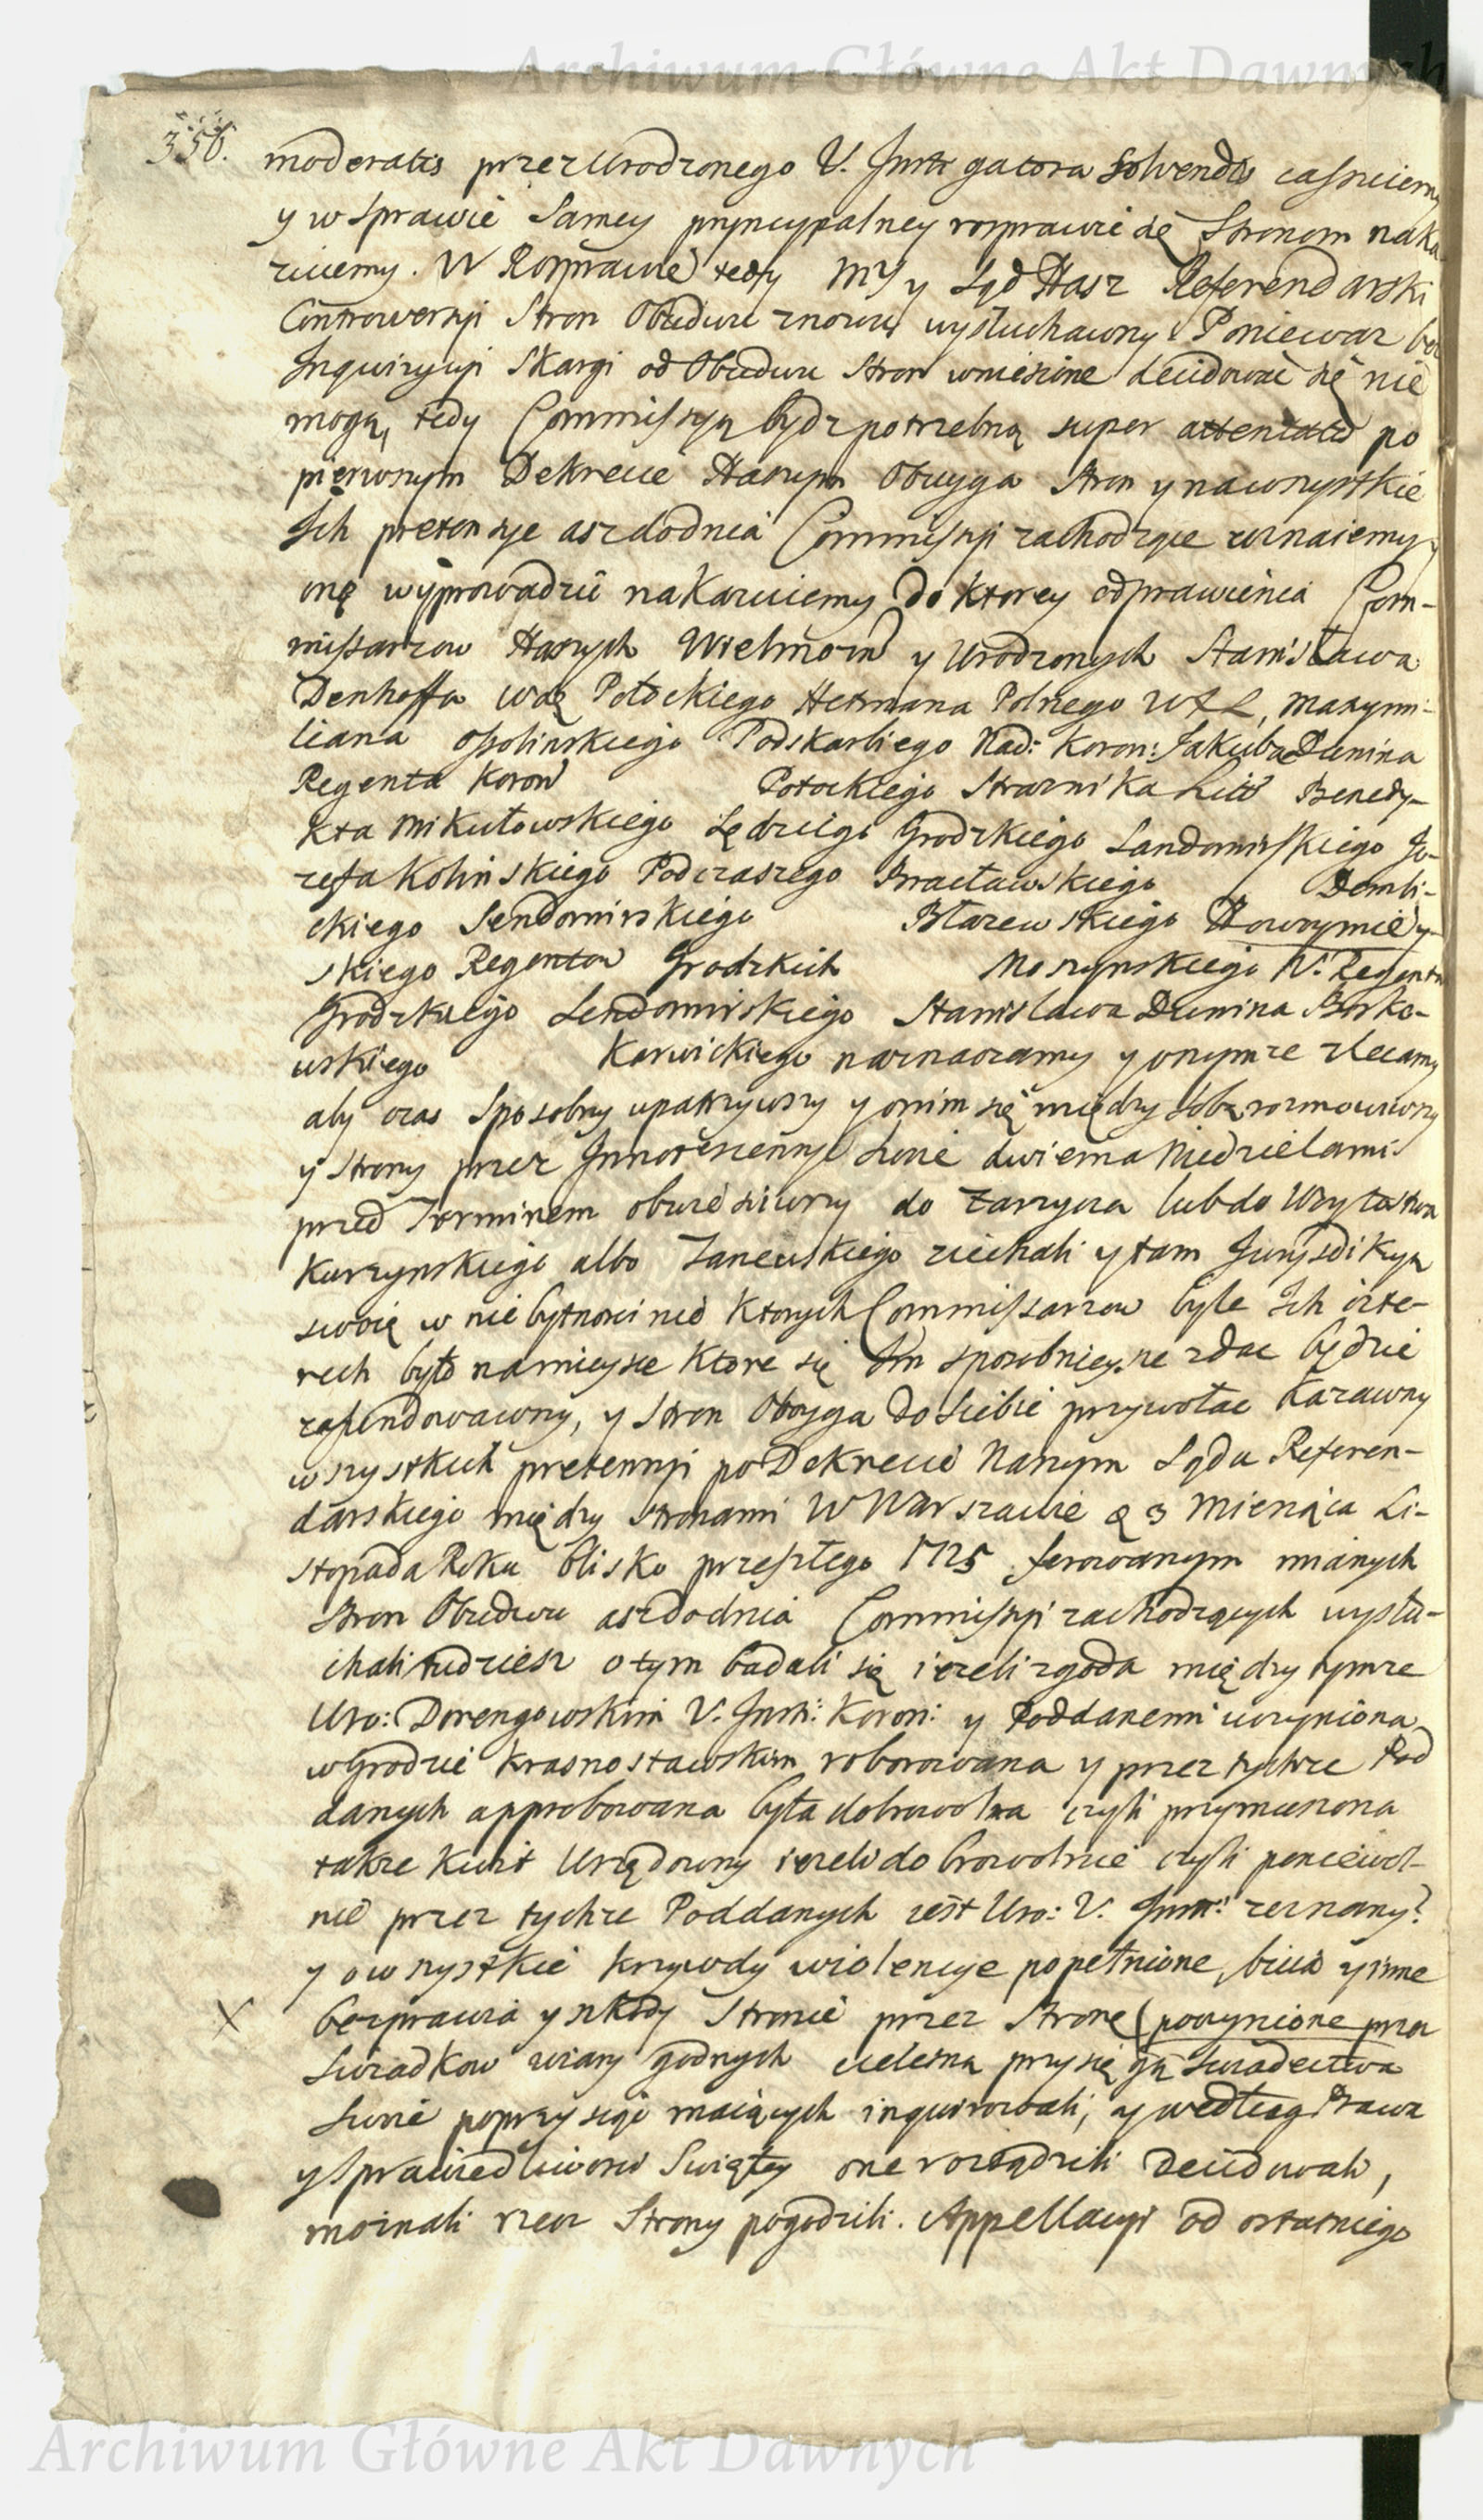 Archiwum Główne Akt Dawnych
356.
moderatis przez Urodzonego V. Instigatora solvendis cassuiemy
y w sprawie samey pryncypalney rozprawić sę Stronom naka
zuiemy. W Rozprawie tedy My y Sąd Nasz Referendarski
Controwersyi Stron Obudwu znowu wysłuchawszy Poniewaz bez
Inquizycyi Skargi od Obudwu Stron wniesione decidować się nie
mogą, tedy Commissyą bydz potrzebną super attentatis po
pierwszym Dekrecie Naszym Oboyga Stron y na wszystkie
Ich pretensye asz do dnia Commissyi zachodzące uznaiemy y
onę wyprowadzić nakazuiemy Do ktorey odprawienia Com-
missarzow Naszych Wielmożn y Urodzonych Stanisława
Denhoffa Potockiego Hetmana Polnego WXL, Maxymi-
liana Ossolinskiego Podskarbiego Nad: Koron: Jakuba Dunina
Regenta Koron Potockiego Straznika Litt Benedy-
kta Mikułowskiego Sędziego Grodzkiego Sandomirskiego Jo-
zefa Kolinskiego Podczaszego Bracławskiego Dembi-
ckiego Sendomirskiego Błazewskiego Nowomiey-
skiego Regentow Grodzkich Moszynskiego V. Regenta
Grodzkiego Sendomirskiego Stanislawa Dunina Borko-
wskiego Karwickiego naznaczamy y onymze zlecamy
aby czas sposobny upatrzywszy y onim się między sobą rozmowiwszy
y Strony przez Innotescencyę swoie dwiema Niedzielami
przed Terminem obwiesciwszy do Zarzycza lub do Woytostwa
Kurzynskiego albo Janewskiego ziechali y tam Jurysdikcyą
swoię w niebytnosci niektorych Commissarzow byle Ich czte-
rech było na mieysce ktore się Im sposobnieysze zdac będzie
zafundowawszy, y Stron Oboyga do siebie przywołac kazawszy
wszystkich pretensyi po Dekrecie Naszym Sądu Referen-
darskiego między Stronami w Warszawie D 3 Miesiąca Li-
stopada Roku blisko przeszłego 1725 ferowanym mianych
Stron Obudwu asz do dnia Commissyi zachodzących wysłu-
chali tudziesz o tym badali się iezeli zgoda między tymze
Uro: Dorengowskim V. Inst: Koron: y Poddanemi uczyniona
w Grodzie Krasnostawskim roborowana y przez tychze Pod
danych approbowana była dobrowolna czyli przymuszona
takze Kwit Urzędowny iezeli dobrowolnie czyli poniewol-
nie przez tychze Poddanych iest Uro: V. Inst: zeznany?
y o wszystkie krzywdy wiolencye popełnione, bicia y inne
X bezprawia y szkody Stronie przez Stronę poczynione przez
Swiadkow wiary godnych cielesną przysięgą swiadectwa
swoie poprzysiądz maiących inquirowali, y według Prawa
y Sprawiedliwosci Swiętey one rozsądzili decidowali,
moznali rzecz Strony pogodzili. Appellacyi od ostatniego
Archiwum Główne Akt Dawnych